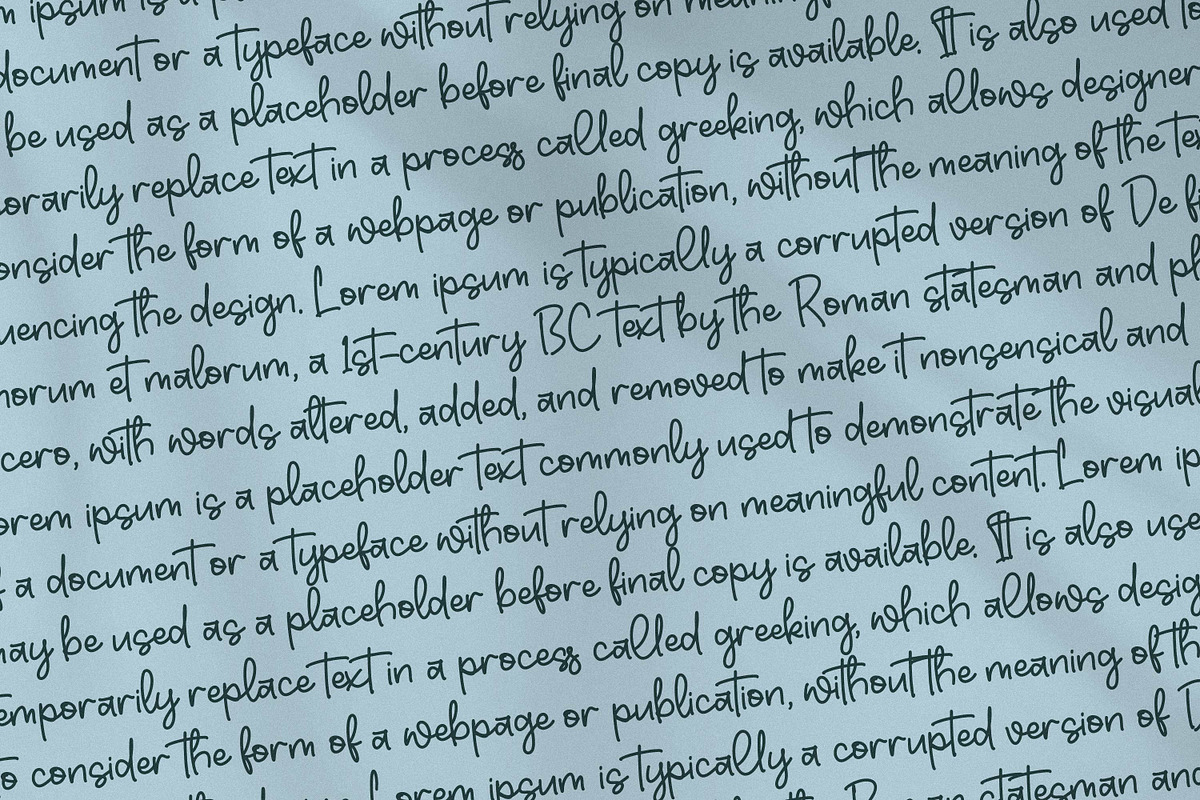 ipsum is a
document or a typeface without relying on
be used as a placeholder before final copy is available. It is also used to
orarily replace text in a process called greeking, which allows designer
onsider the form of a webpage or publication, without the meaning of the te
uencing the design. Lorem ipsum is typically a corrupted version of De fi
norum et malorum, a 1st-century BC text by the Roman statesman and ph
cero, with words altered, added, and removed to make it nonsensical and
orem ipsum is a placeholder text commonly used to demonstrate the visual
f a document or a typeface without relying on meaningful content. Lorem ip
may be used as a placeholder before final copy is available. It is also use
emporarily replace text in a process called greeking, which allows desig
to consider the form of a webpage or publication, without the meaning of th
Lorem ipsum is typically a corrupted version of D
statesman and